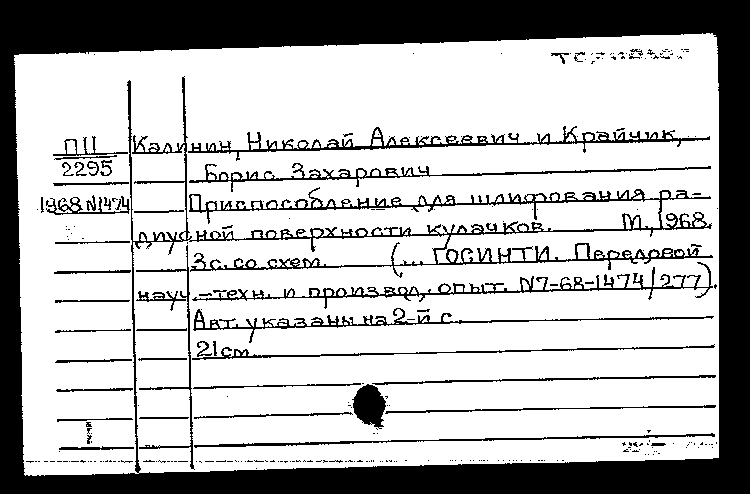 ПII Калинин, Николай Алексеевич и Крайчик,
2295 Борис Захарович
1968 N1474 Приспособление для шлифования ра-
диусной поверхности кулачков. М., 1968.
3с. со схем. (... ГОСИНТИ. Передовой
науч.-техн. и производ. опыт. N7-68-1474/277).
Авт. указаны на 2-й с.
21см.